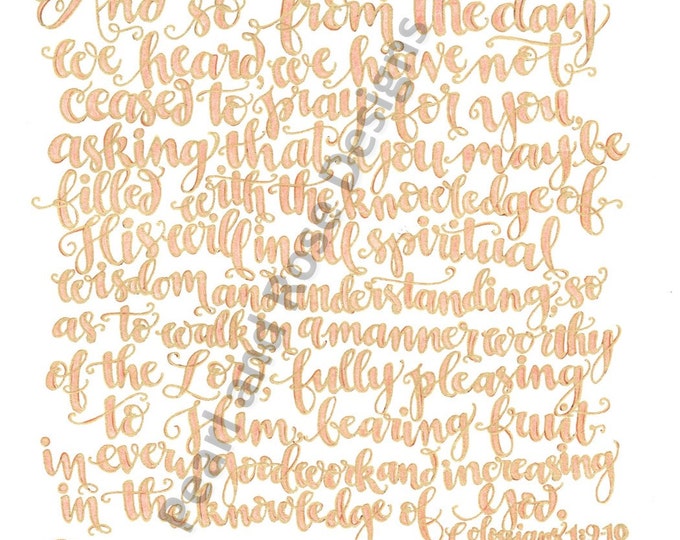 And so, from the day
we heard, we have not
ceased to pray for you,
asking that you may be
filled with the knowledge of
His will in all spiritual
wisdom and understanding, so
as to walk in a manner worthy
of the Lord, fully pleasing
to Him, bearing fruit
in every good work and increasing
in the knowledge of God.
Colossians 1:9-10
Pearl and Rose Designs